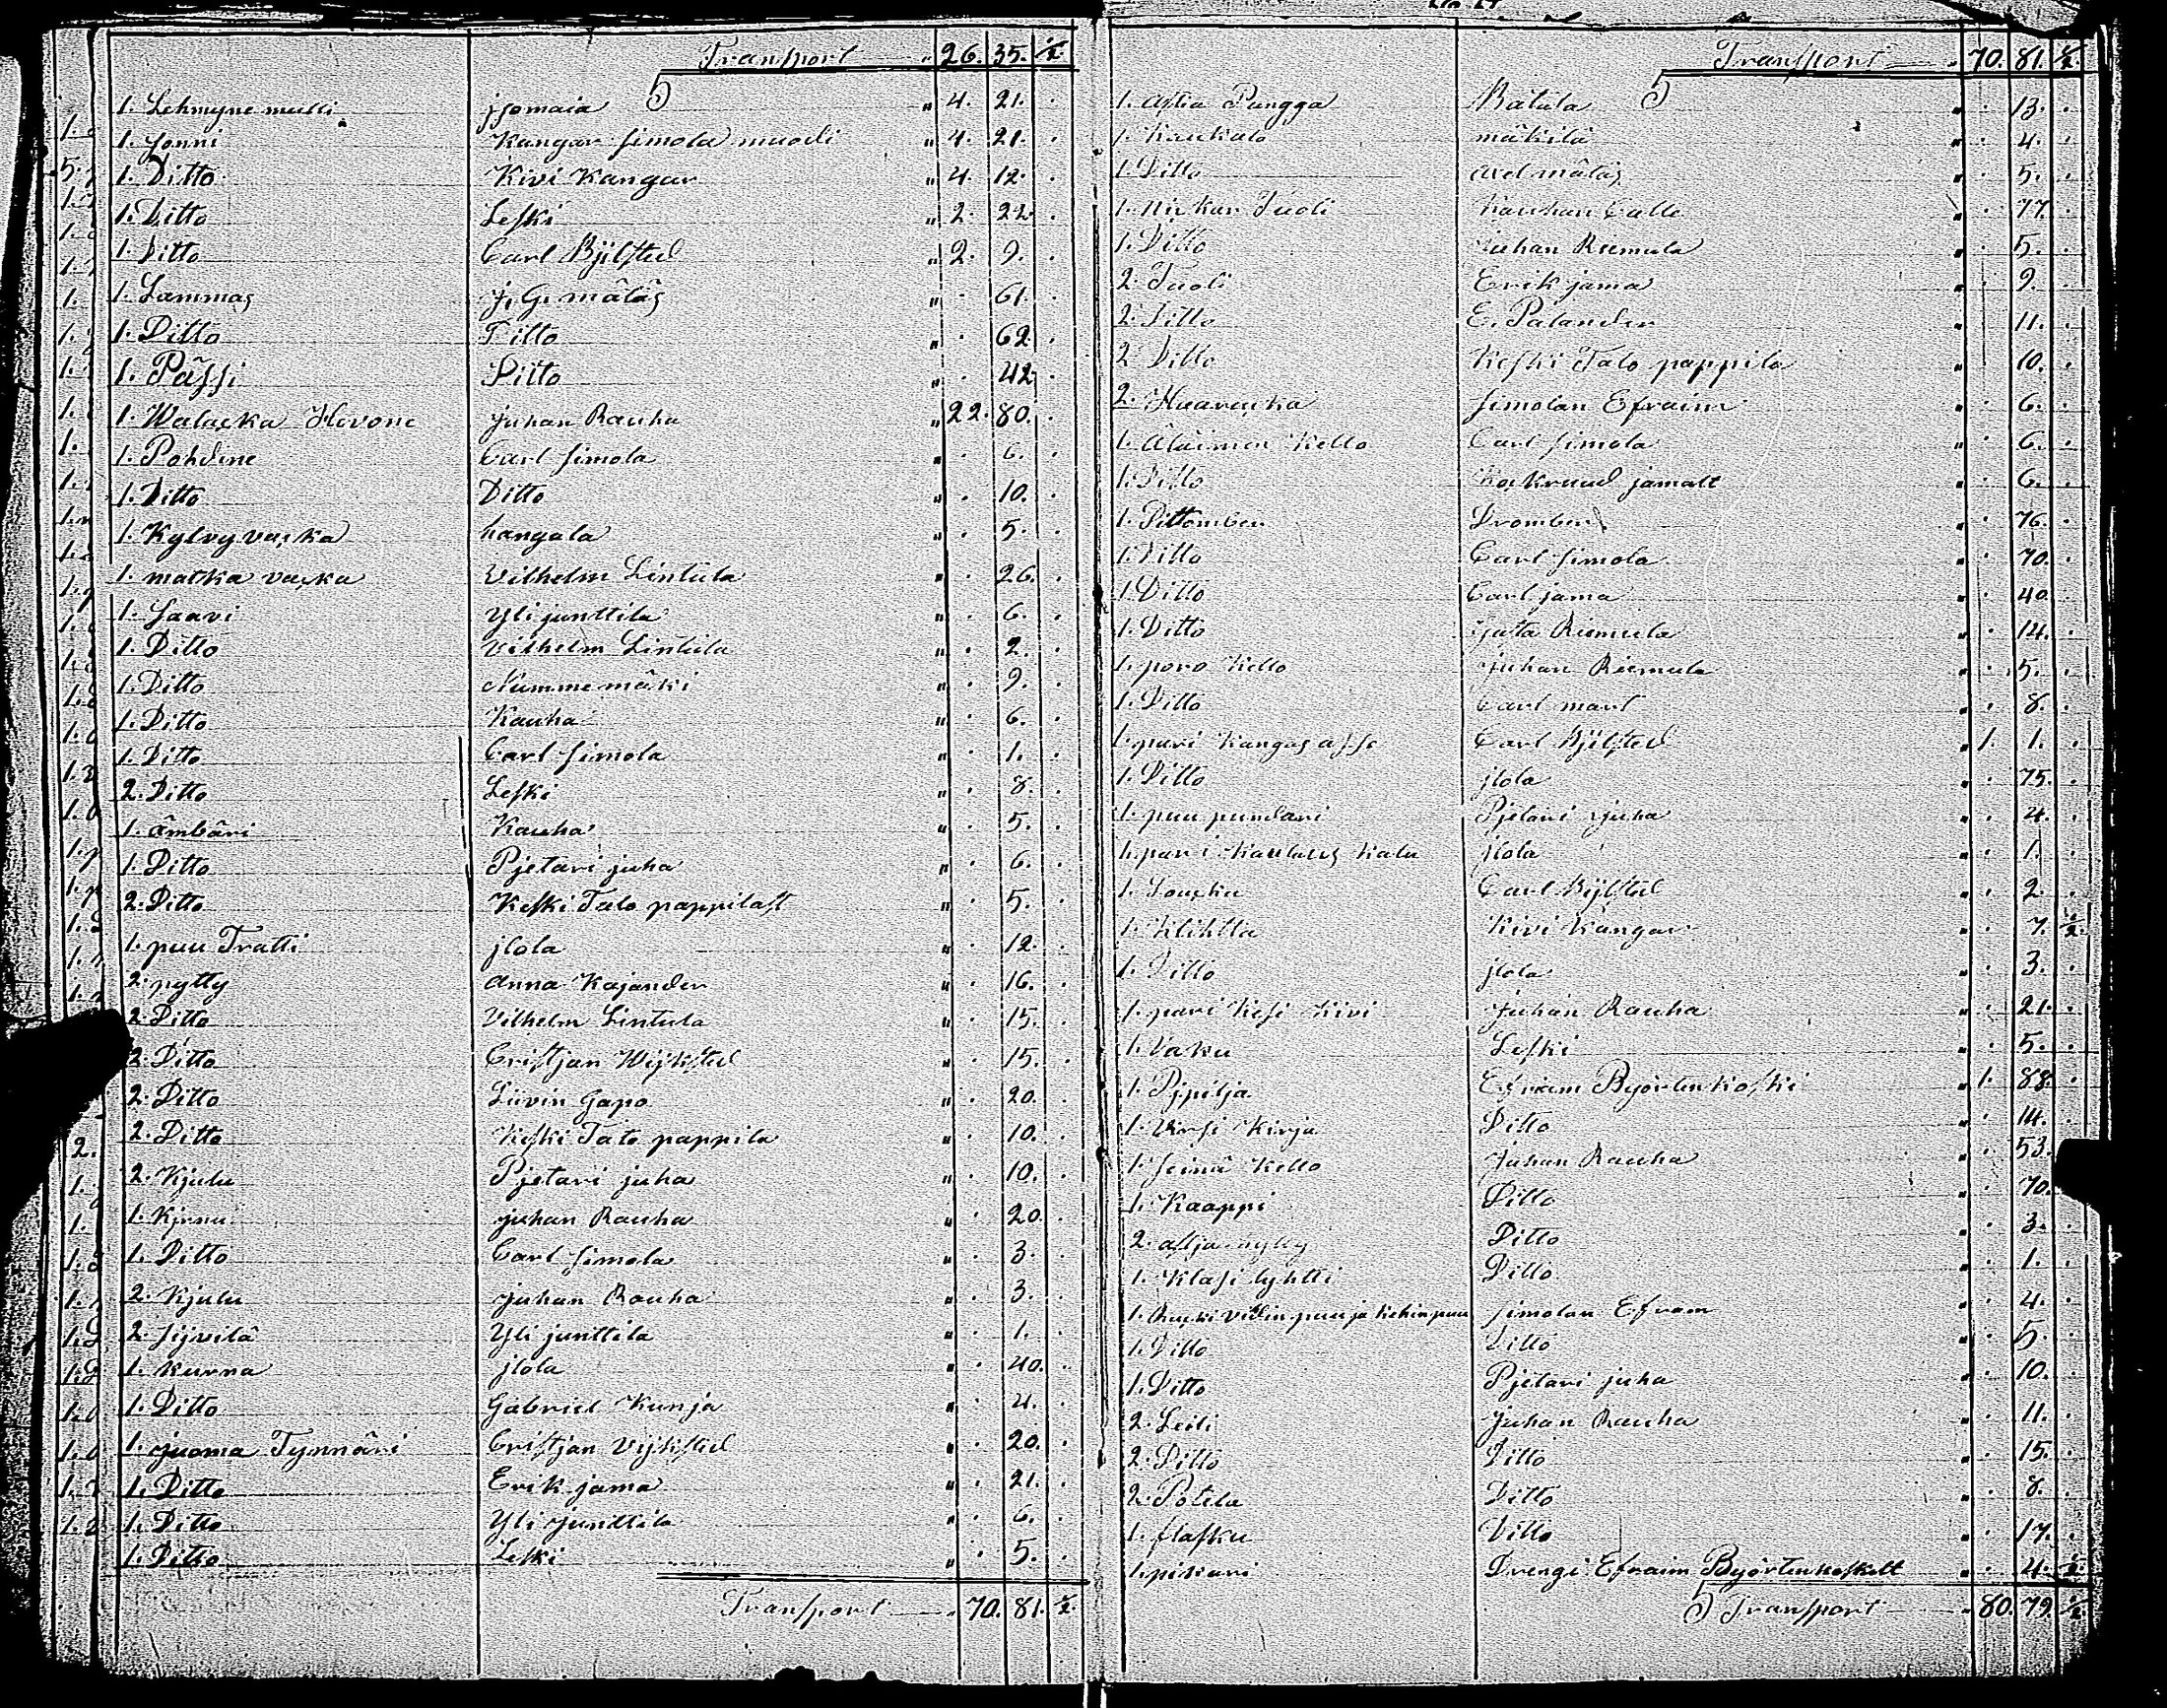 Transport " 26. 35. ½
1. Lehmyne mulli jsomaia " 4. 21. .
1. Sonni Kangar Simola muori " 4. 21. .
1. Ditto Kivi Kangar " 4. 12. .
1. Ditto Leski " 2. 22. .
1. Ditto Carl Bjilsted " 2. 9. .
1. Lammas J. G. mätäs " . 61. .
1. Ditto Ditto " . 62. .
1. Pässi Ditto " . 42. .
1. Walacka Hevone Juhan Rauha " 22. 80. .
1. Pohdine Carl Simola " . 6. .
1. Ditto Ditto " . 10. .
1. Kylvy vacka hangala " . 5. .
1. matka vacka Vilhelm Lintula " . 26. .
1. Saavi Yli junttila " . 6. .
1. Ditto Vilhelm Lintula " . 2. .
1. Ditto Numme mäki " . 9. .
1. Ditto Kauha " . 6. .
1. Ditto Carl Simola " . 1. .
2. Ditto Leski " . 8. .
1. ämbäri Kauha " . 5. .
1. Ditto Pjetari juha " . 6. .
2. Ditto Keski Talo pappilast " . 5. .
1. puu Tratti jlola " . 12. .
2. pytty Anna Kajander " . 16. .
2. Ditto Vilhelm Lintula " . 15. .
2. Ditto Cristjan Wijksted " . 15. .
2. Ditto Liivin Gapo " . 20. .
2. Ditto Keski Talo pappila " . 10. .
2. Kjulu Pjetari juha " . 10. .
1. Kjrnu juhan Rauha " . 20. .
1. Ditto Carl Simola " . 3. .
2. Kjulu juhan Rauha " . 3. .
2. Sijvilä Yli junttila " . 1. .
1. Kurna jlola " . 40. .
1. Ditto Gabriel Kunja " . 4. .
1. juoma Tynnäri Cristjan Vijksted " . 20. .
1. Ditto Erik jama " . 21. .
1. Ditto Yli junttila " . 6. .
1. Ditto Leski " . 5. .
Transport " 70. 81. ½
Transport " 70. 81. ½
1. Astia Pangga Batula " . 13. .
1. Kaukalo mäkilä " . 4. .
1. Ditto Axel mätäs " . 5. .
1. Nirkan Tuoli Kauhan Calle " . 77. .
1. Ditto Juhan Riemula " . 5. .
2. Tuoli Erik jama " . 9. .
2. Ditto E. Palander " . 11. .
2. Ditto Keski Talo pappila " . 10. .
2. Haarucka Simolan Efraim " . 6. .
1. Aläimen Kello Carl Simola " . 6. .
1. Ditto jamalt " . 6. .
1. Pittomben Drombend " . 76. .
1. Ditto Carl Simola " . 70. .
1. Ditto Carl jama " . 40. .
1. Ditto Riemula " . 14. .
1. poro Kello Juhan Riemula " . 5. .
1. Ditto Carl mart " . 8. .
1. pari Kangas Carl Bjilsted " 1. 1. .
1. Ditto jlola " . 75. .
1. puu pundari Pjetari juha " . 4. .
1. pari Kaulaus Kalu jlola " . 1. .
1. Louxku Carl Bjilsted " . 2. .
1. Klihtta Kivi Kangar " . 7. ½
1. Ditto jlola " . 3. .
1. pari Käsi Kivi Juhan Rauha " . 21. .
1. Vaku Leski " . 5. .
1. Pjpilja Efraim Byörkenkoski " 1. 88. .
1. Virsi Kirja Ditto " . 14. .
1. Seinä Kello Juhan Rauha " . 53.
1. Kaappi Ditto " . 70.
2. astja hylly Ditto " . 3. .
1. Klasi lyhtti Ditto " . 1. .
1. vidin puu ja kehin puu Simolan Efram " . 4. .
1. Ditto Ditto " . 5. .
1. Ditto Pjetari juha " . 10. .
2. Leili Juhan Rauha " . 11. .
2. Ditto Ditto " . 15. .
2. Potela Ditto " . 8. .
1. flasku Ditto " . 17. .
1. pikari Drengi Efraim Byörkenkoskelt " . 4. ½
Transport " 80. 79. ½